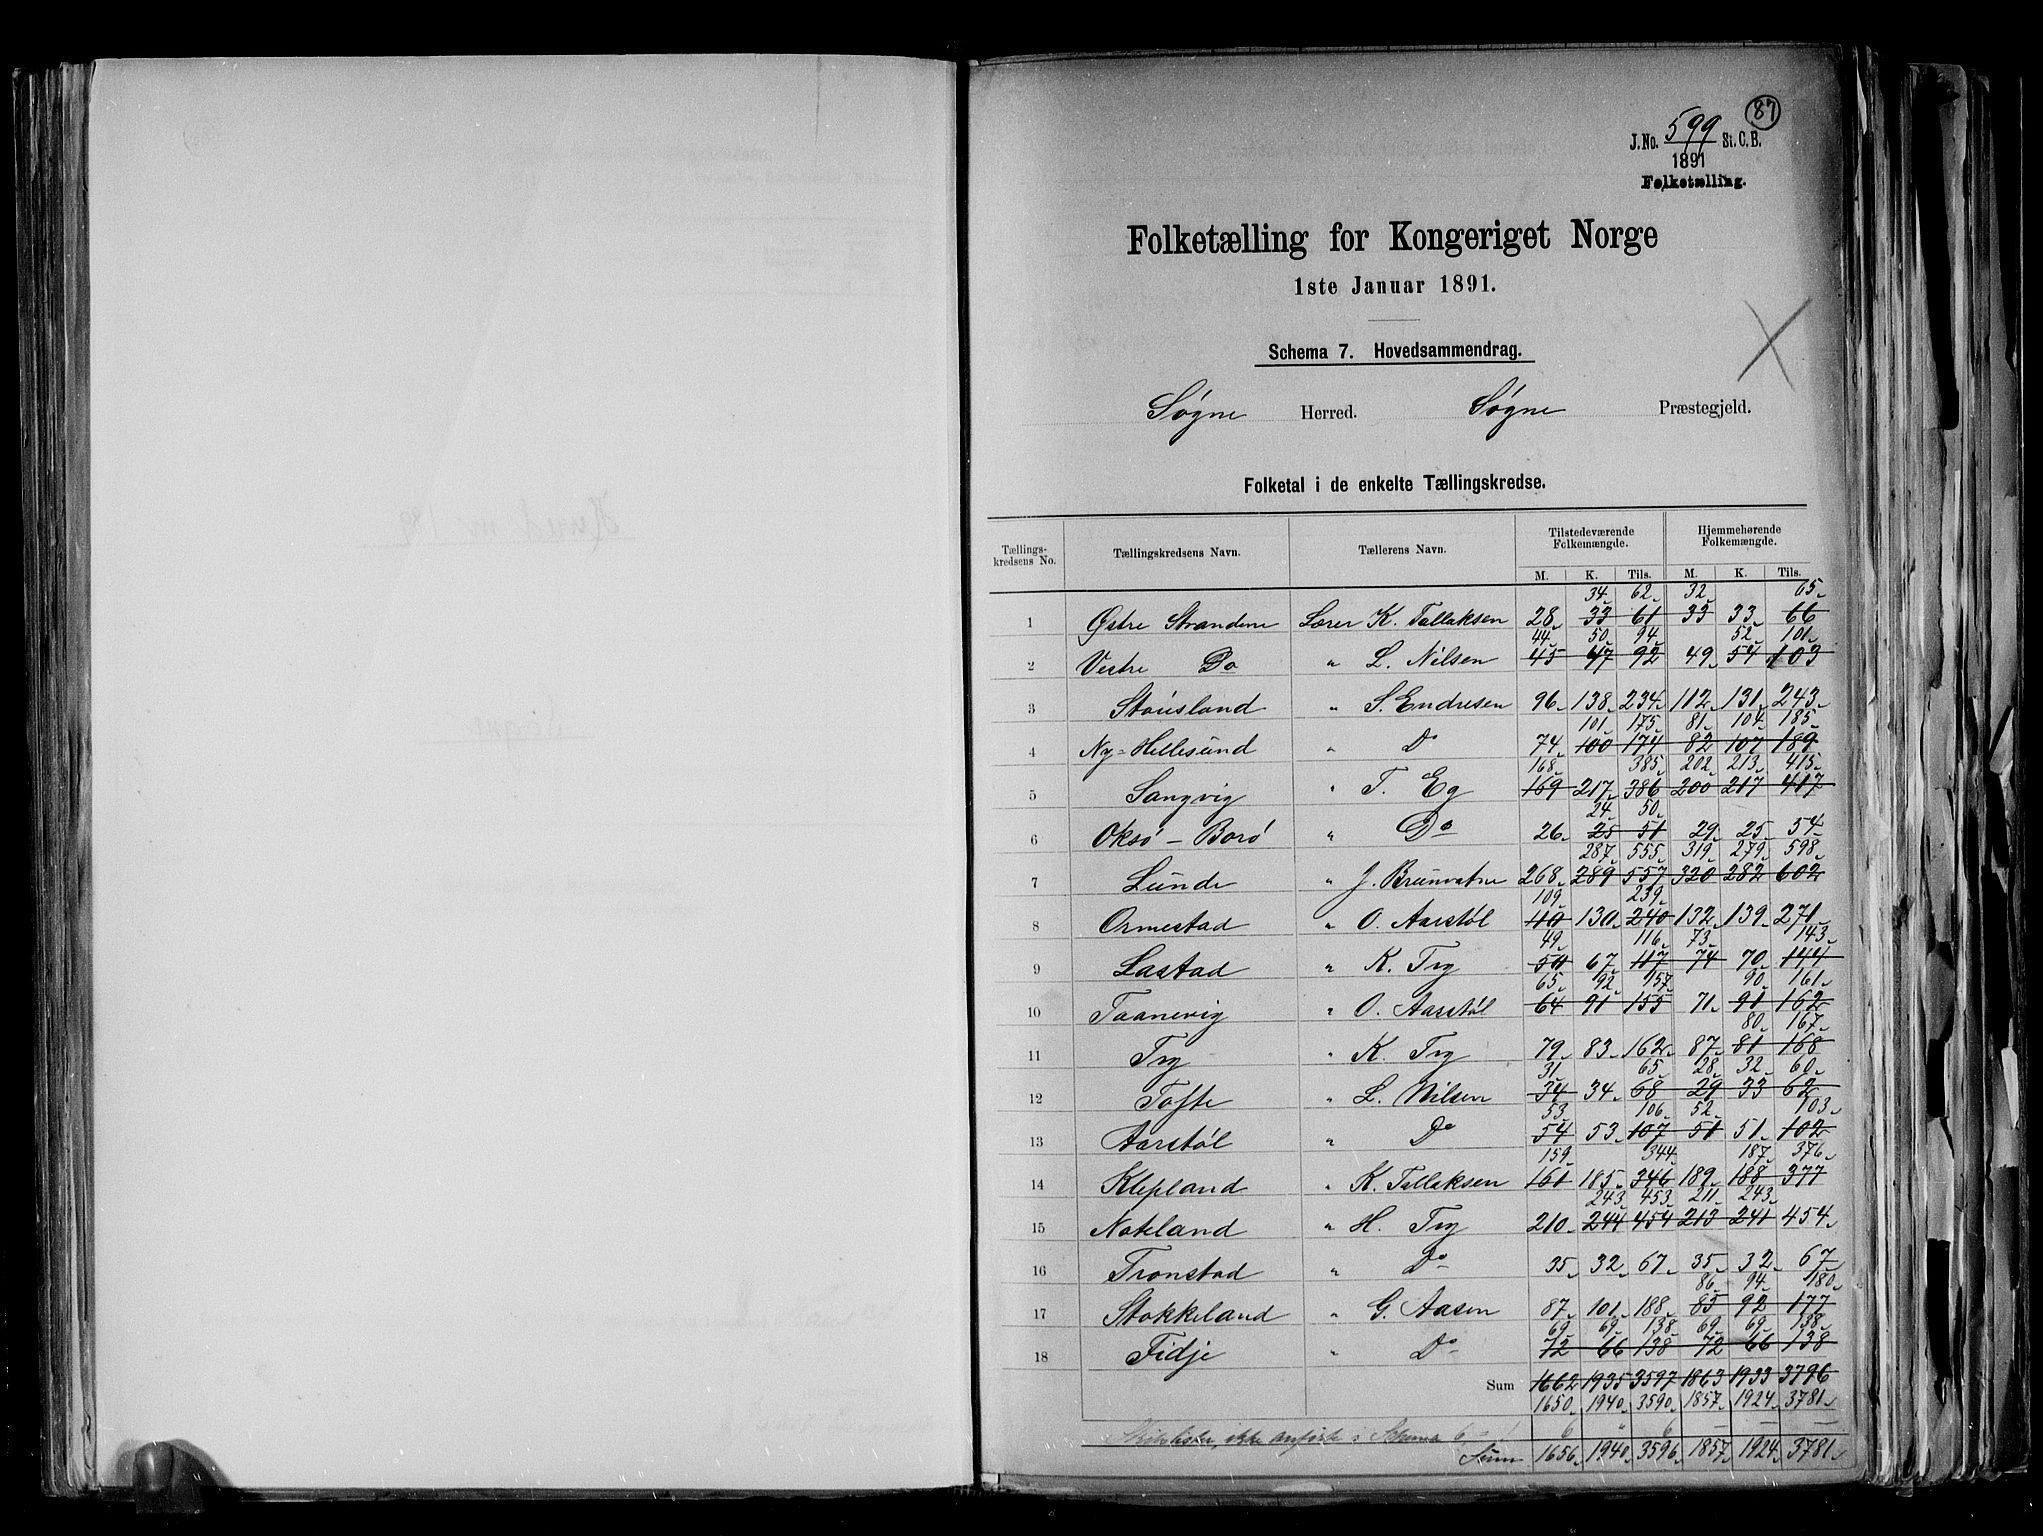 87
J.No. 599 St. C. B.
1891
Folketælling.
Folketælling for Kongeriget Norge
1ste Januar 1891.
Schema 7. Hovedsammendrag.
Søgne Herred. Søgne Præstegjeld.
Folketal i de enkelte Tællingskredse.
Tællings-kredsens No. Tællingskredsens Navn. Tællerens Navn. Tilstedeværende Folkemængde. Hjemmehørende Folkemængde.
M. K. Tils. M. K. Tils.
34 62 32 65
1 Østre Strandene Lærer K. Tallaksen 28 33 61 33 33 66
44 50 94 52 101
2 Vestre Do " L. Nilsen 45 47 92 49 54 103
3 Stousland " S. Endresen 96 138 234 112 131 243
101 175 81 104 185
4 Ny-Hellesund " Do 74 100 174 82 107 189
168 385 202 213 415
5 Langvig " T. Eg 169 217 386 200 217 417
24 50
6 Oksø - Borø " Do 26 25 51 29 25 54
287 555 319 279 598
7 Lunde " J. Brunvatne 268 289 557 320 282 602
109 239
8 Ormestad " O. Aarstøl 110 130 240 132 139 271
49 116 73 143
9 Lastad " K. Try 50 67 117 74 70 144
65 92 157 90 161
10 Taanevig " O. Aarstøl 64 91 155 71 91 162
80 167
11 Try " K. Try 79 83 162 87 81 168
31 65 28 32 60
12 Tofte " L. Nilsen 34 34 68 29 33 62
53 106 52 103
13 Aarstøl " Do 54 53 107 51 51 102
159 344 187 376
14 Klepland " K. Tallaksen 161 185 346 189 188 377
243 453 211 243
15 Nokeland " H. Try 210 244 454 213 241 454
16 Tronstad " Do 35 32 67 35 32 67
86 94 180
17 Stokkeland " G. Aasen 87 101 188 85 92 177
69 69 138 69 69 138
18 Fidje " Do 72 66 138 72 66 138
Sum 1662 1935 3597 1863 1933 3796
1650 1940 3590 1857 1924 3781
ikke anførte i Schema 6 6 " 6 — — —
Sum 1656 1940 3596 1857 1924 3781